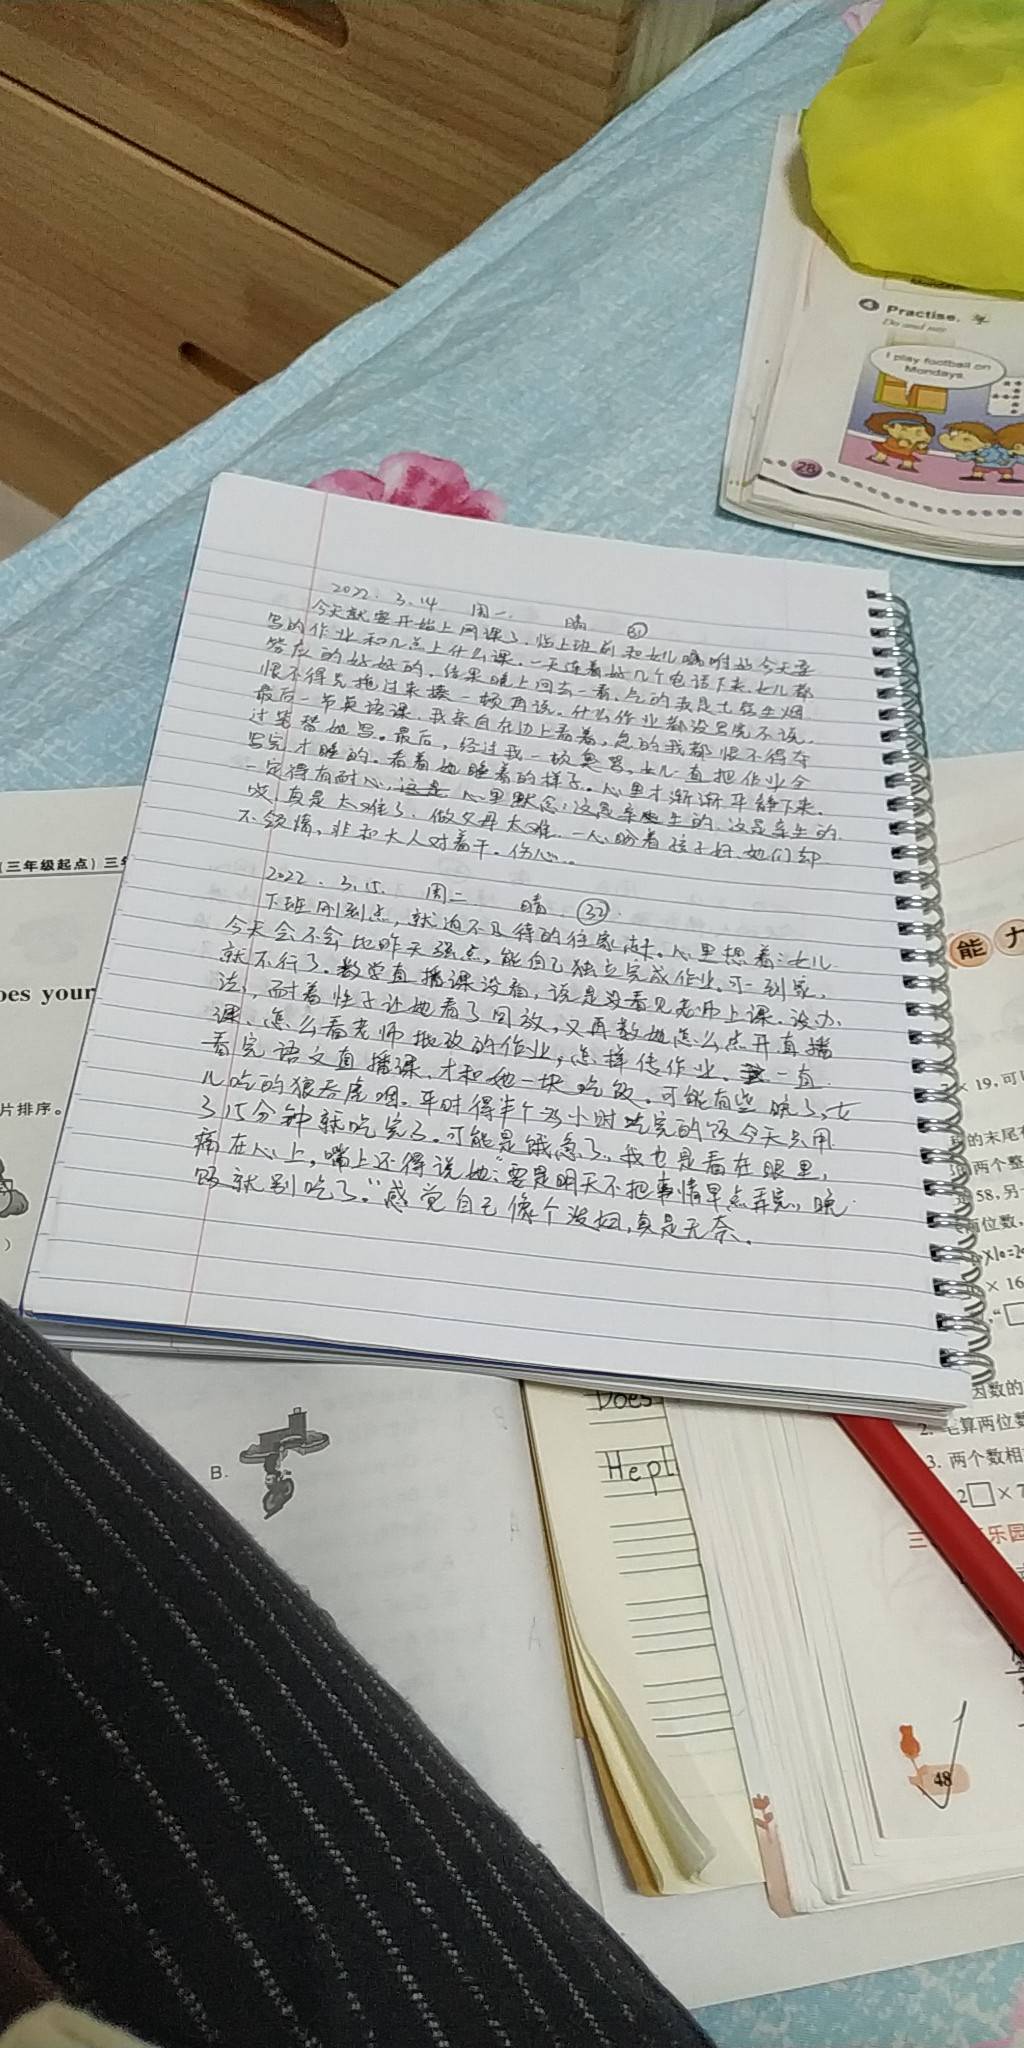 Monday
4 Practise.
Do and say
I play football on
Mondays.
28
2022. 3. 14 周一. 晴 31
今天就要开始上网课了. 临上班前和女儿嘱咐好今天要
写的作业和几点上什么课. 一天连着好几个电话下来. 女儿都
答应的好好的. 结果晚上回去一看. 气的我是七窍生烟
恨不得先拖过来揍一顿再说. 什么作业都没写完不说.
最后一节英语课. 我亲自在边上看着, 急的我都恨不得夺
过笔替她写. 最后, 经过我一顿臭骂. 女儿一直把作业全
写完才睡的. 看着她睡着的样子. 心里才渐渐平静下来.
一定得有耐心, 心里默念: 这是亲生的. 这是亲生的.
哎. 真是太难了. 做父母太难. 一心盼着孩子好. 她们却
不领情、非和大人对着干. 伤心...
2022. 3. 15. 周二 晴. 32
下班刚到点, 就迫不及待的往家赶. 心里想着: 女儿
今天会不会比昨天强点, 能自己独立完成作业. 可一到家,
就不行了. 数学直播课没看, 说是没看见老师上课. 没办
法, 耐着性子让她看了回放, 又再教她怎么点开直播
课、怎么看老师批改的作业, 怎样传作业. 一直
看完语文直播课. 才和她一块吃饭. 可能有些晚了, 女
儿吃的狼吞虎咽. 平时得半个多小时吃完的饭今天只用
了15分钟就吃完了. 可能是饿急了. 我也是看在眼里,
痛在心上, 嘴上还得说她: 要是明天不把事情早点弄完, 晚
饭就别吃了." 感觉自己像个泼妇, 真是无奈.
(三年级起点) 三年
oes your
片排序。
)
B.
Does
Hepl
能 力
× 19, 可
的末尾
两个整
58, 另
两位数,
× 16
因数的
2. 笔算两位数
3. 两个数相
2□ × 7
三 乐园
48